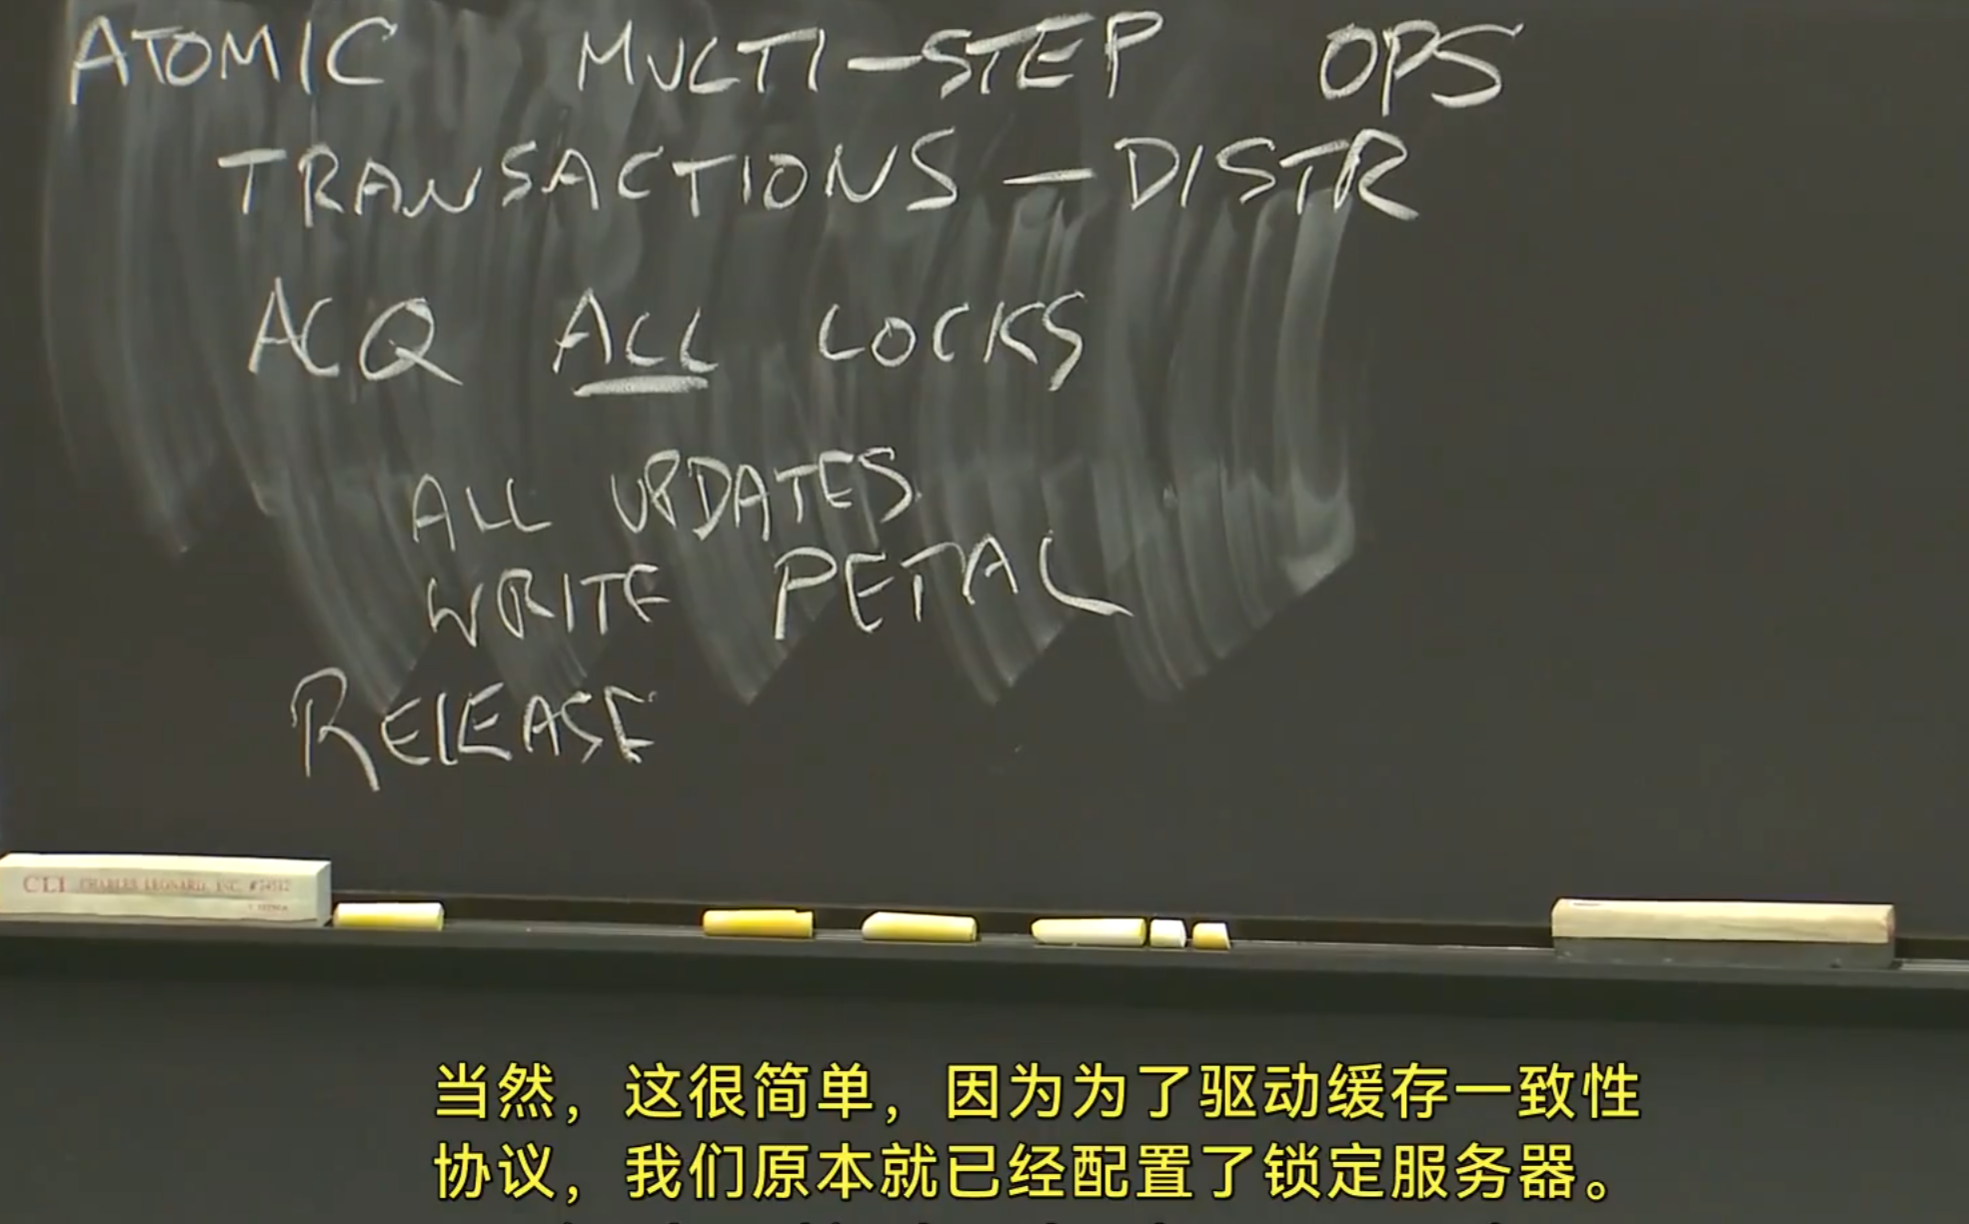 ATOMIC MULTI-STEP OPS
TRANSACTIONS - DISTR
ACQ ALL LOCKS
ALL UPDATES
WRITE PETAL
RELEASE
CLI CHARLES LEONARD, INC.
当然，这很简单，因为为了驱动缓存一致性
协议，我们原本就已经配置了锁定服务器。